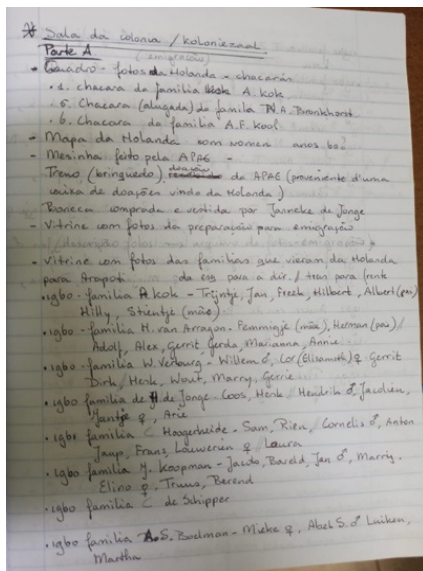 * Sala da colonia / koloniezaal
Parte A (emigração)
- Quadro - fotos da Holanda - chacarán
• 1. chacara da familia A. kok
• 5. Chacara (alugada) da familia N.A. Bronkhorst
• 6. Chacara da familia A.F. Kool
- Mapa da Holanda com nomen anos 60
- Mesinha feito pela APAE -
Treno (brinquedo), doação da APAE (proveniente d'uma
caixa de doações vindo da Holanda)
- Boneca comprada e vertida por Janneke de Jonge
- Vitrine com fotos da preparação para emigração
- Vitrine com fotos das familias que vieram da Holanda
para Arapoti. da esq para a dir. / tras para frente
• 1960 - familia A. kok - Trijntje, Jan, Freek, Hilbert, Albert (pai)
Hilly, Stientje (mãe).
• 1960 - familia H. van Arragon - Femmigje (mãe), Herman (pai) /
Adolf, Alex, Gerrit, Gerda, Marianna, Annie
• 1960 - familia W. Verburg - Willem ♂, Cor (Elisabeth) ♀, Gerrit
Dirk, Henk, Wout, Marry, Gerrie
• 1960 familia de H. de Jonge - Coos, Henk / Hendrik ♂, Jacolien,
Jantje ♀, Arie
• 1961 familia C Hoogerheide - Sam, Rien, / Cornelis ♂, Anton
Jaap, Frans, Louwerien ♀ / Laura
• 1960 familia J. Koopman - Jacob, Bareld, Jan ♂, Marrig,
Elino ♀, Truus, Berend
• 1960 familia C de Schipper
• 1960 familia A.S. Boelman - Mieke ♀, Abel S. ♂ Luiken,
Martha